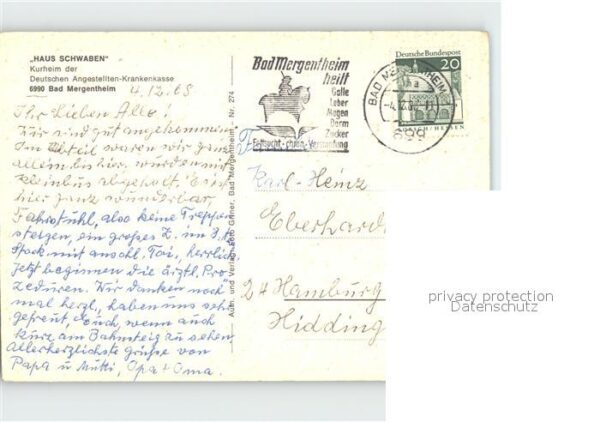 „HAUS SCHWABEN"
Kurheim der
Deutschen Angestellten-Krankenkasse
6990 Bad Mergentheim
4.12.68
Ihr Lieben Alle!
Wir sind gut angekommen
Im Abteil waren wir ganz
allein bis hier, wurden mit
Kleinbus abgeholt. Es ist
hier ganz wunderbar,
Fahrstuhl, also keine Treppen
steigen, ein großes Z. im 3.
Stock mit anschl. Toi., herrlich.
Jetzt beginnen die ärztl. Pro-
zeduren. Wir danken noch
mal herzl., haben uns sehr
gefreut, Euch, wenn auch
kurz am Bahnsteig zu sehen
Allerherzlichste Grüße von
Papa u Mutti, Opa + Oma.
Aufn. und Verlag: Foto Bad Mergentheim Nr. 274
Bad Mergentheim
heilt
Galle
Leber
Magen
Darm
Zucker
Fettsucht - chron. Verstopfung
BAD MERGENTHEIM
699
Deutsche Bundespost
20
LORSCH/HESSEN
Karl-Heinz
Eberhardt
24 Hamburg
Hidding
privacy protection
Datenschutz